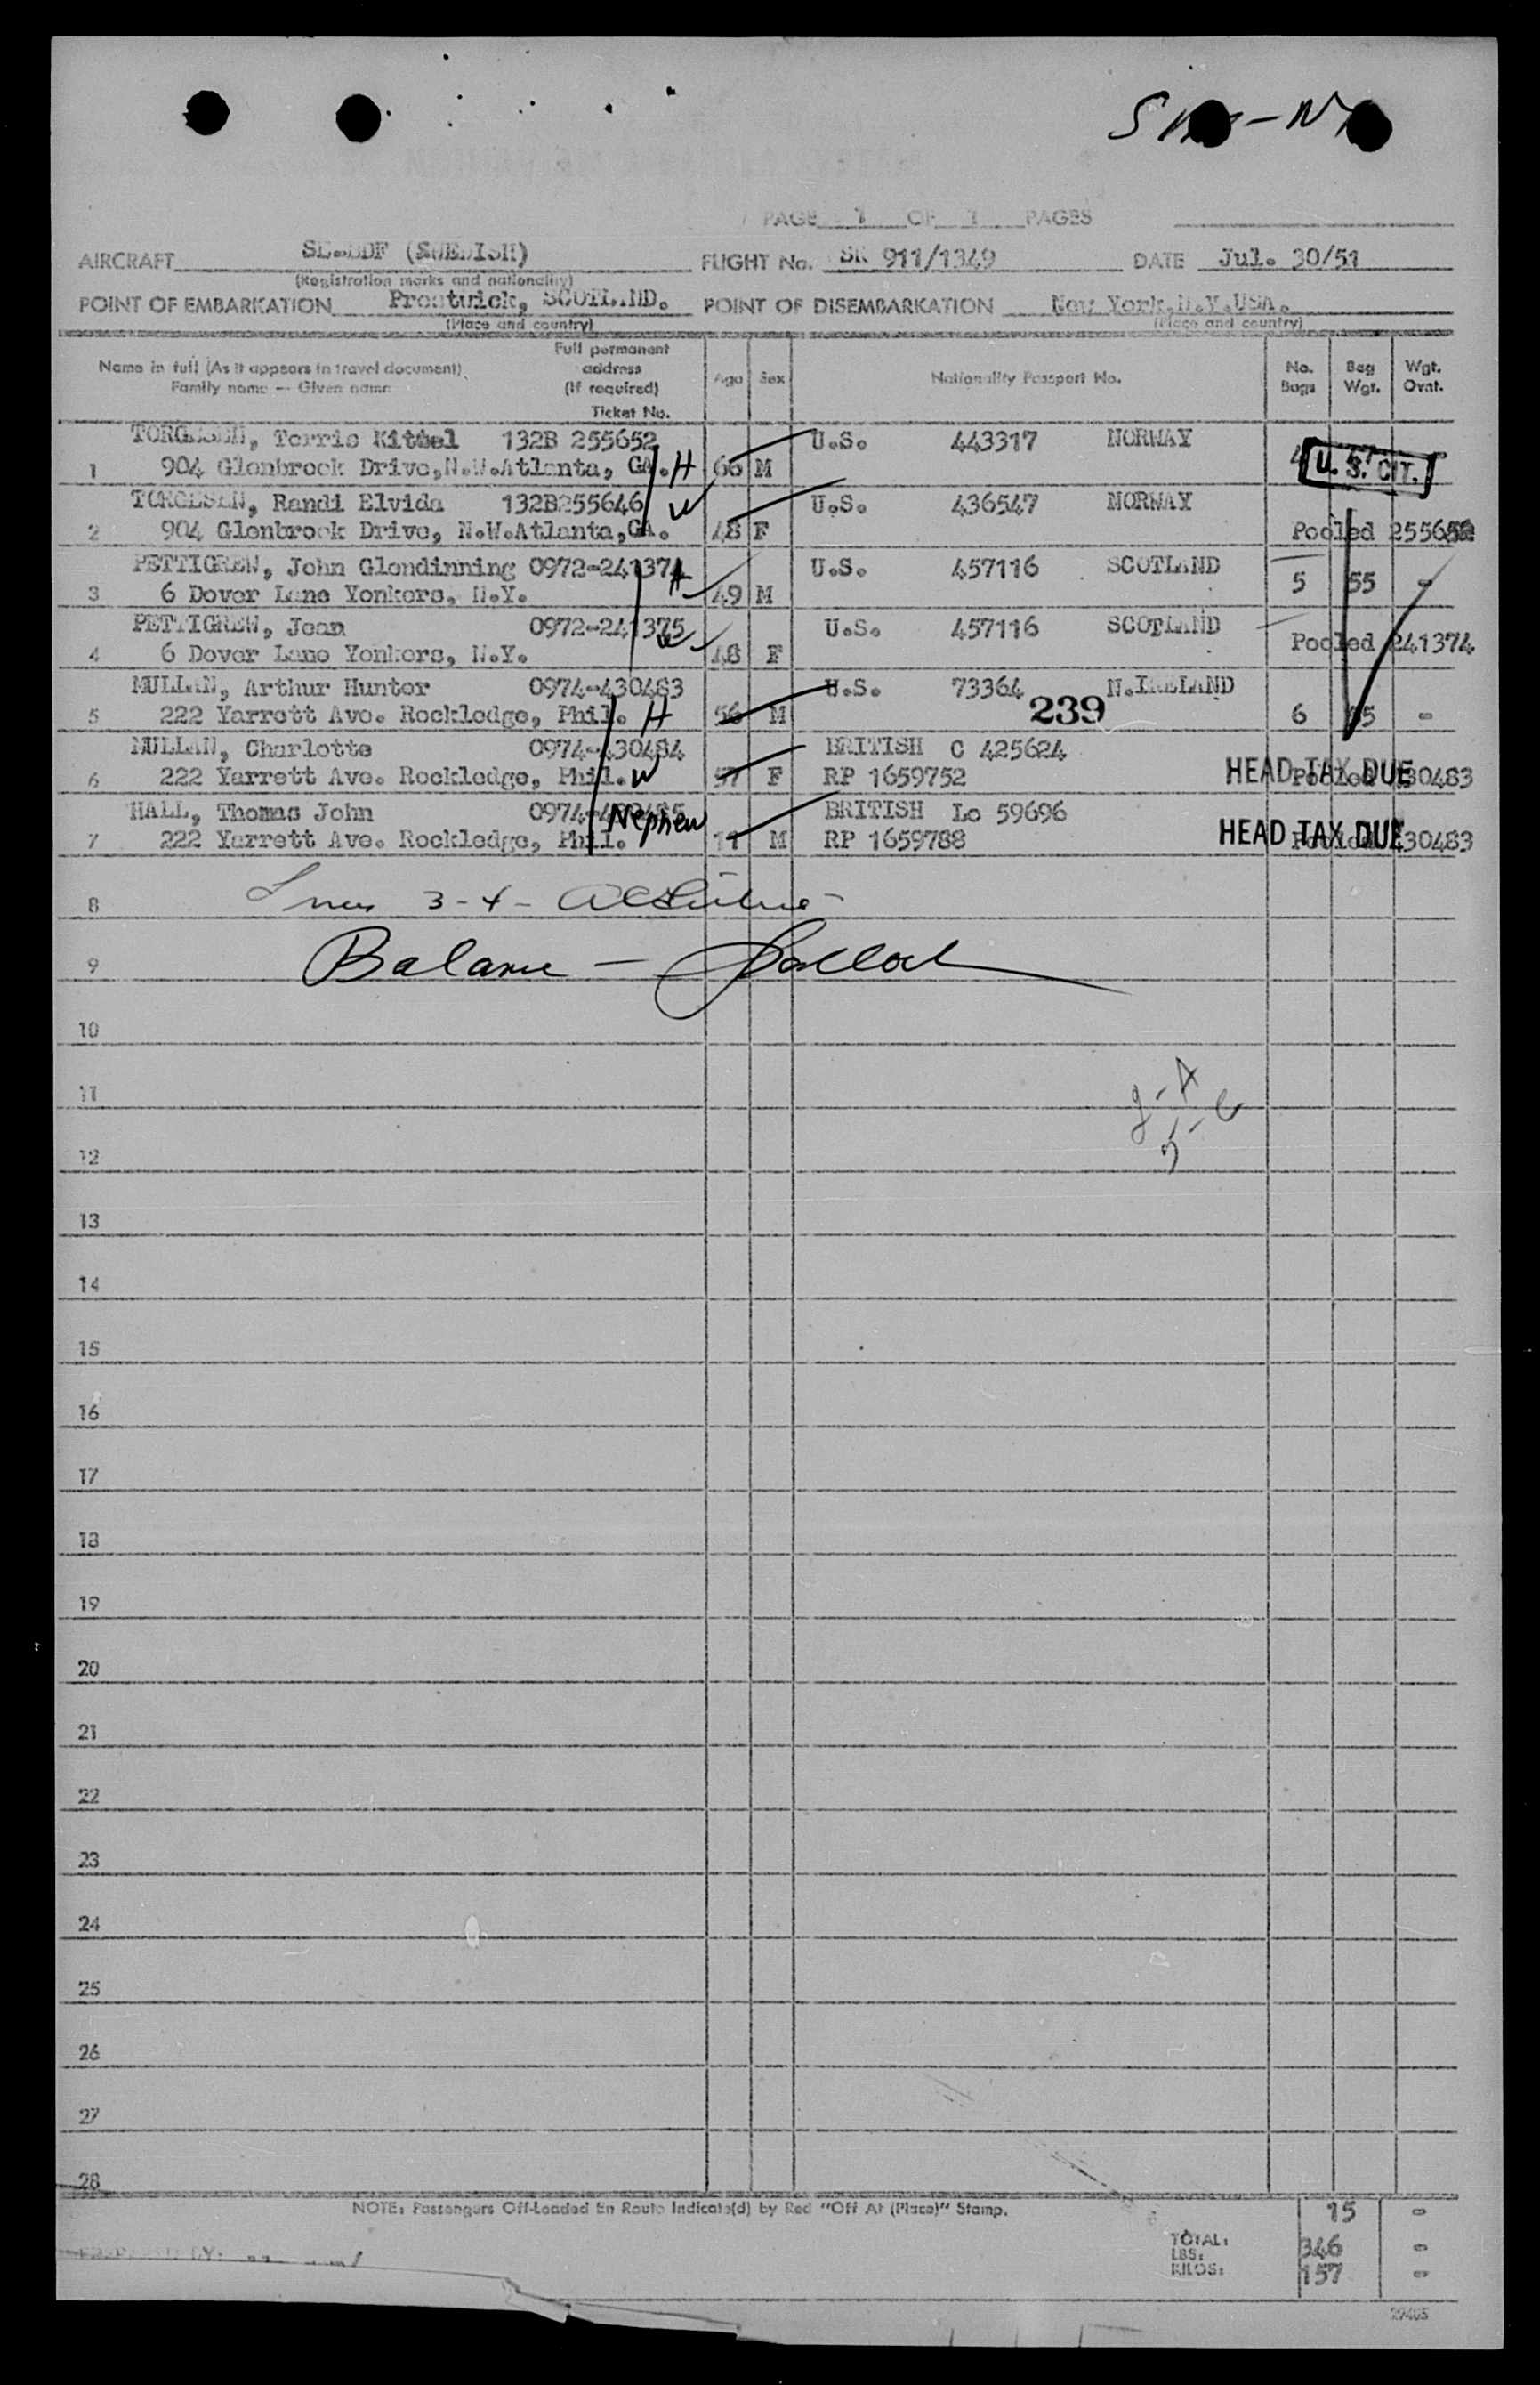 PAGE 1 OF 1 PAGES
AIRCRAFT (SWEDISH) FLIGHT No. SK 911/1349 DATE Jul. 30/51
(Registration marks and nationality)
POINT OF EMBARKATION Prestwick, SCOTLAND. POINT OF DISEMBARKATION New York.N.Y.USA.
(Place and country) (Place and country)
Name in full (As it appears in travel document) Family name — Given name Full permanent address (If required) Ticket No. Age Sex Nationality Passport No. No. Bags Bag Wgt. Wgt. Ovnt.
TORGESEN, Torris Kittel 132B 255652 U.S. 443317 NORWAY
1 904 Glenbrook Drive,N.W.Atlanta, GA. H 66 M U. S. CIT.
TORGESEN, Randi Elvida 132B255646 W U.S. 436547 NORWAY
2 904 Glenbrook Drive, N.W.Atlanta,GA. 48 F Pooled 255652
PETTIGREW, John Glendinning 0972-241374 H U.S. 457116 SCOTLAND
3 6 Dover Lane Yonkers, N.Y. 49 M 5 55 -
PETTIGREW, Jean 0972-241375 W U.S. 457116 SCOTLAND
4 6 Dover Lane Yonkers, N.Y. 48 F Pooled 241374
MULLAN, Arthur Hunter 0974-430483 U.S. 73364 N.IRELAND
5 222 Yarrott Ave. Rockledge, Phil. H 56 M 239 6 -
MULLAN, Charlotte 0974-430484 BRITISH C 425624
6 222 Yarrett Ave. Rockledge, Phil. W 57 F RP 1659752 HEAD TAX DUE Pooled 430483
HALL, Thomas John 0974-430485 Nephew BRITISH Lo 59696
7 222 Yarrett Ave. Rockledge, Phil. 11 M RP 1659788 HEAD TAX DUE Pooled 430483
8 Lines 3-4-
9 Balance -
10
11
12
13
14
15
16
17
18
19
20
21
22
23
24
25
26
27
28
NOTE: Passengers Off-Loaded En Route Indicate(d) by Red "Off At (Place)" Stamp. 15 -
TOTAL:
LBS: 346 -
KILOS: 157 -
PREPARED BY: